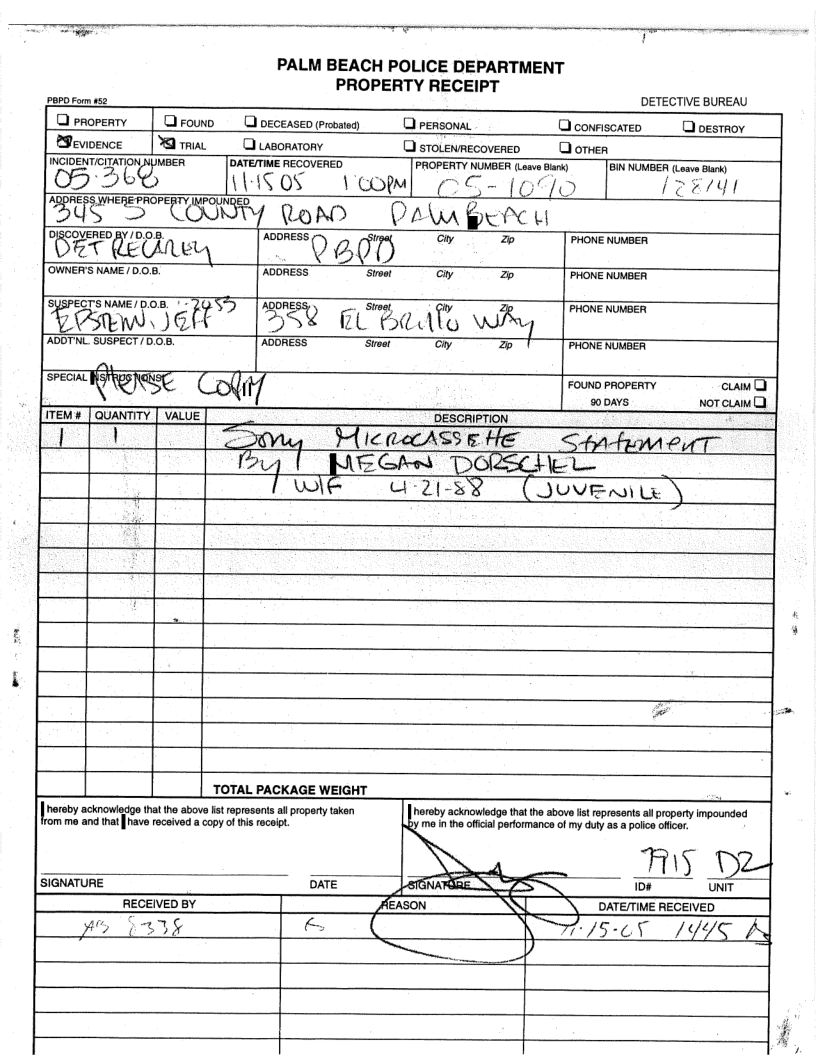 PALM BEACH POLICE DEPARTMENT
PROPERTY RECEIPT
PBPD Form #52 DETECTIVE BUREAU
PROPERTY FOUND DECEASED (Probated) PERSONAL CONFISCATED DESTROY
EVIDENCE TRIAL LABORATORY STOLEN/RECOVERED OTHER
INCIDENT/CITATION NUMBER DATE/TIME RECOVERED PROPERTY NUMBER (Leave Blank) BIN NUMBER (Leave Blank)
05-368 11-15 05 1:00PM 05-1090 128141
ADDRESS WHERE PROPERTY IMPOUNDED
345 S COUNTY ROAD PALM BEACH
DISCOVERED BY / D.O.B. ADDRESS Street City Zip PHONE NUMBER
DET RECAREY PBPD
OWNER'S NAME / D.O.B. ADDRESS Street City Zip PHONE NUMBER
SUSPECT'S NAME / D.O.B. ADDRESS Street City Zip PHONE NUMBER
EPSTEIN, JEFF 358 EL BRILLO WAY
ADDT'NL SUSPECT / D.O.B. ADDRESS Street City Zip PHONE NUMBER
SPECIAL INSTRUCTIONS FOUND PROPERTY CLAIM
PLEASE COPY 90 DAYS NOT CLAIM
ITEM # QUANTITY VALUE DESCRIPTION
1 1 Sony MICROCASSETTE STATEMENT
By [name of juvenile withheld]
W/F [date of birth withheld] (JUVENILE)
TOTAL PACKAGE WEIGHT
I hereby acknowledge that the above list represents all property taken
from me and that I have received a copy of this receipt.
I hereby acknowledge that the above list represents all property impounded
by me in the official performance of my duty as a police officer.
7915 D2
SIGNATURE DATE SIGNATURE ID# UNIT
RECEIVED BY REASON DATE/TIME RECEIVED
8338 11-15-05 1445